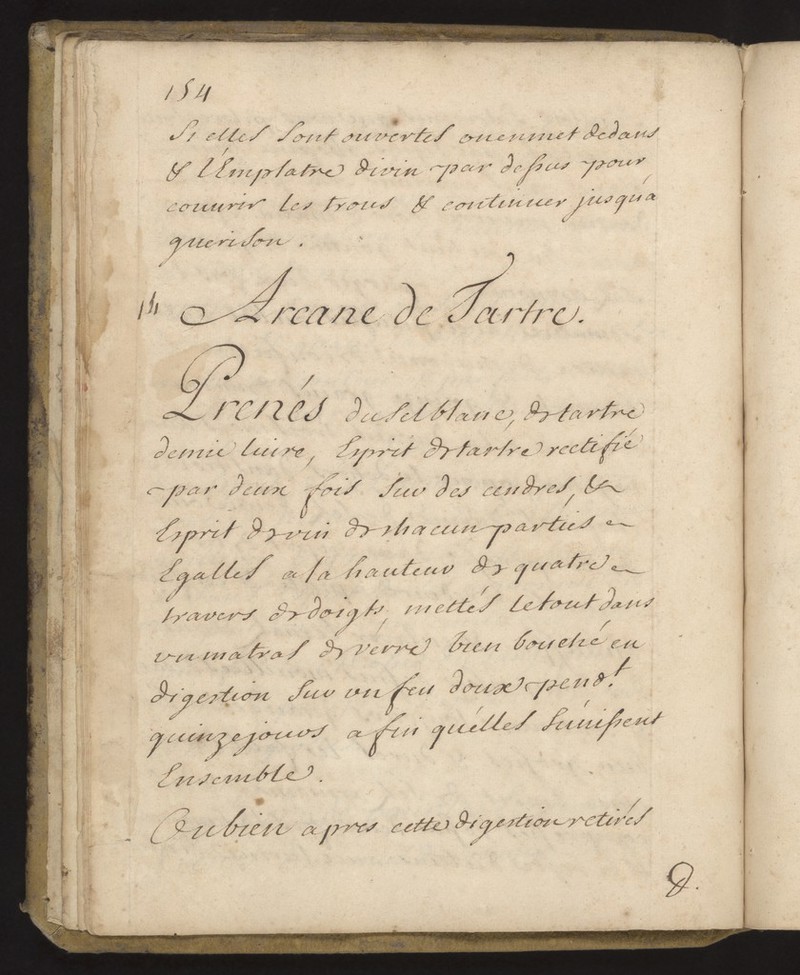 154
Si elles sont ouvertes on en met dedans
& l'Emplatre divin par dessus pour
couurir les trous & continuer jusqu'a
guerison.
14 Arcane de Tartre.
Prenés du sel blanc, de tartre
demie liure, Esprit de tartre rectifié
par deux fois sur des cendres, &
Esprit de vin de chacun parties
Egalles a la hauteur de quatre
travers de doigts, mettés le tout dans
un matras de verre bien bouché en
digestion sur un feu doux pend.t
quinze jours afin qu'elles s'unissent
Ensemble.
Ou bien apres cette digestion retirés